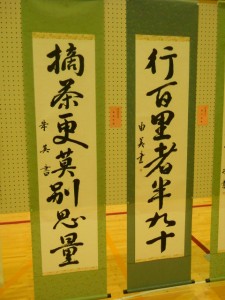 行百里者半九十
由美書
摘茶更莫別思量